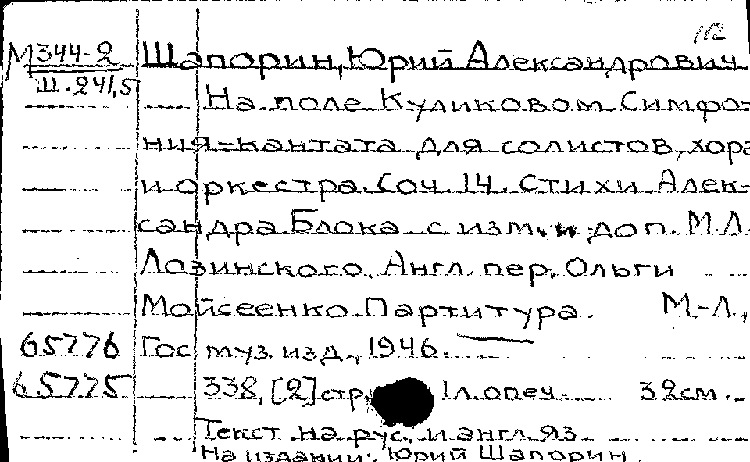 112
М344-2 Шапорин, Юрий Александрович
Ш.241,5 На поле Куликовом. Симфо-
ния-кантата для солистов, хора
и оркестра. Соч. 14. Стихи Алек-
сандра Блока с изм. и доп. М.Л.
Лозинского. Англ. пер. Ольги
Мойсеенко. Партитура. М.-Л.,
65776 Гос. муз. изд., 1946.
65775 338, [2] стр. 1 л. опеч. 32 см.
Текст на рус. и англ. яз.
На издании: Юрий Шапорин.